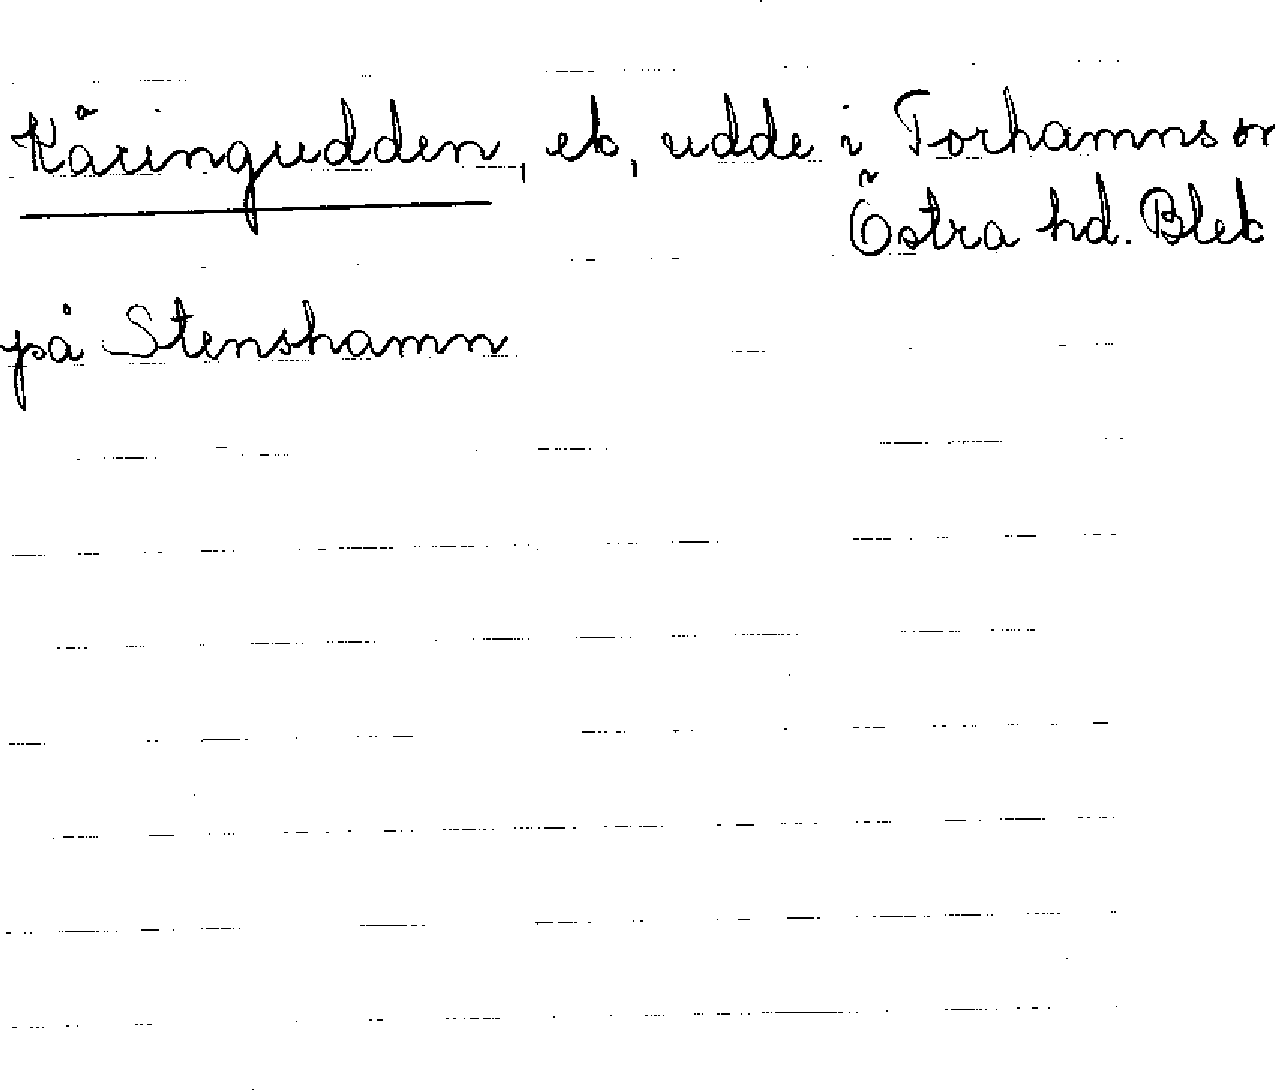 Käringudden, ek, udde i Torhamns sn
Östra hd. Blek
på Stenshamn